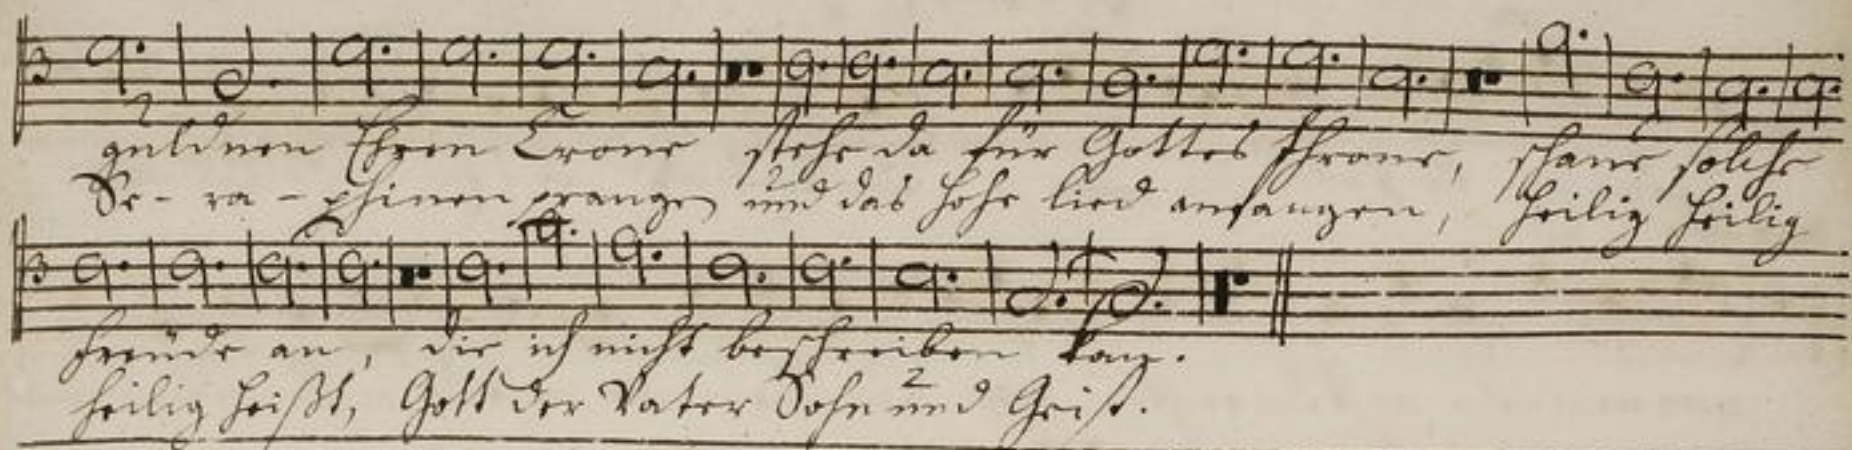 güldnen Ehren Crone stehe da für Gottes Throne, schaue solche
Se- ra - phinen prangen und das hohe lied anfangen, heilig heilig
freüde an, die ich nicht beschreiben kan.
heilig heißt, Gott der Vater Sohn und Geist.